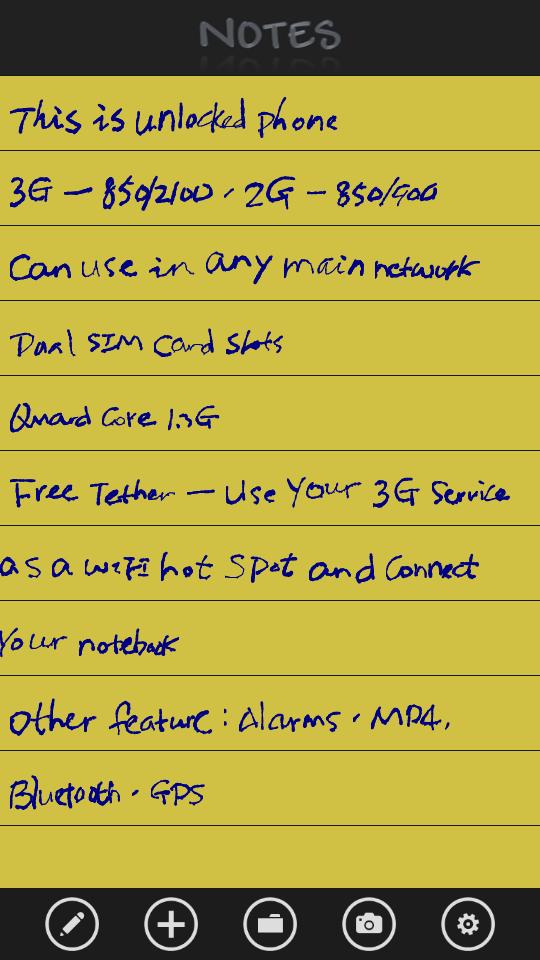 NOTES
This is unlocked phone
3G - 850/2100, 2G - 850/900
Can use in any main network
Dual SIM Card Slots
Quard Core 1.3G
Free Tether - Use Your 3G Service
as a wifi hot spot and Connect
Your notebook
Other feature: Alarms, MP4,
Bluetooth, GPS